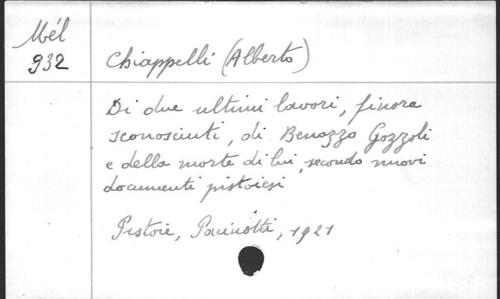 Mél
932
Chiappelli (Alberto)
Di due ultimi lavori, finora
sconosciuti, di Benozzo Gozzoli
e della morte di lui, secondo nuovi
documenti pistoiesi
Pistoie, Pacinotti, 1921